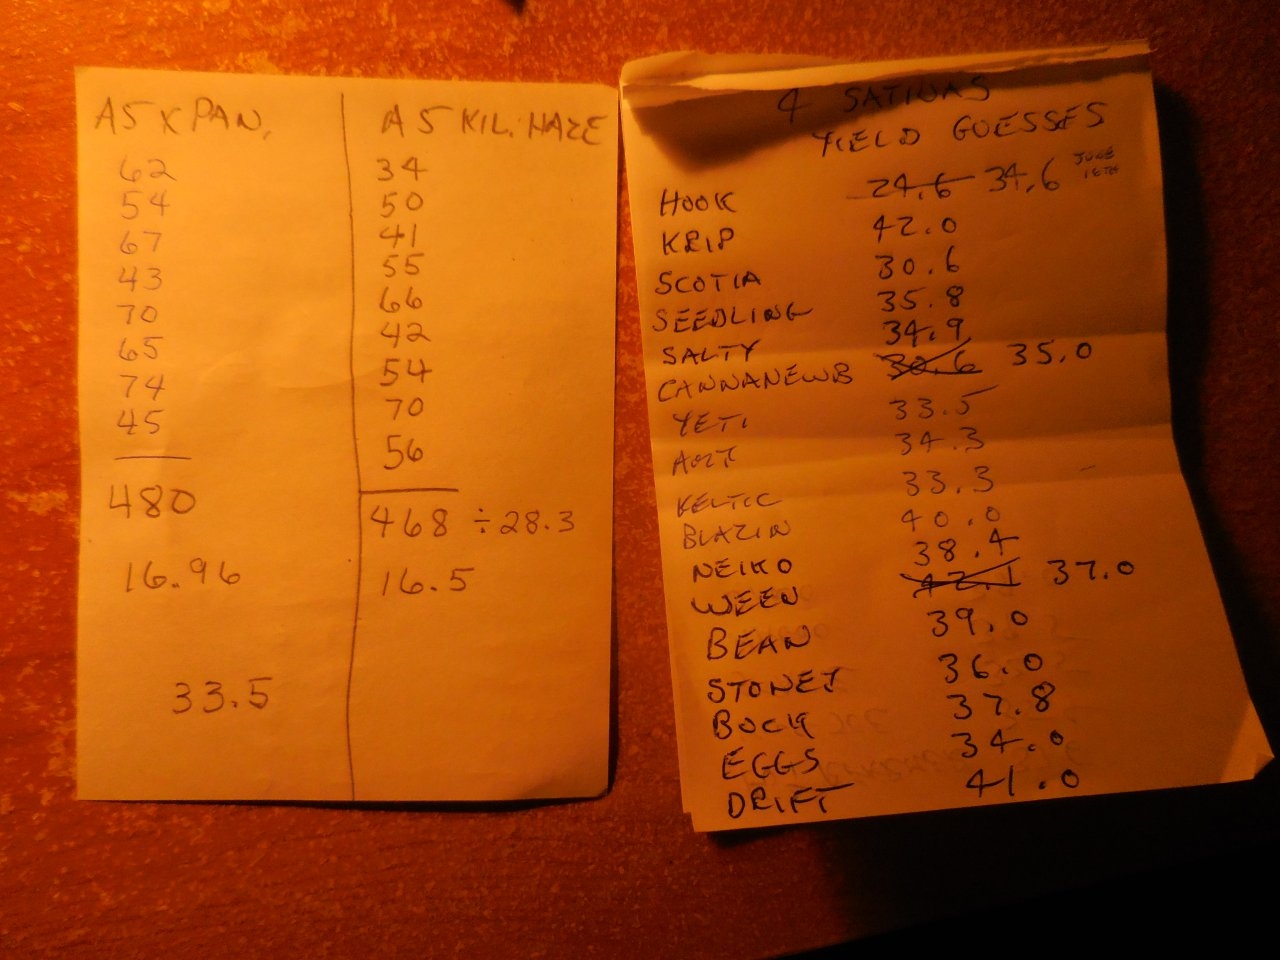 A5 X PAN.
62
54
67
43
70
65
74
45
480
16.96
33.5
A5 KIL. HAZE
34
50
41
55
66
42
54
70
56
468 ÷ 28.3
16.5
4 SATIVAS
YIELD GUESSES
HOOK 24.6 34.6
KRIP 42.0
SCOTIA 30.6
SEEDLING 35.8
SALTY 34.9
CANNANEWB 30.6 35.0
YETI 33.5
AOZT 34.3
KELTIC 33.3
BLAZIN 40.0
NEIKO 38.4
WEEN 42.1 37.0
BEAN 39.0
STONEY 36.0
BOCK 37.8
EGGS 34.0
DRIFT 41.0